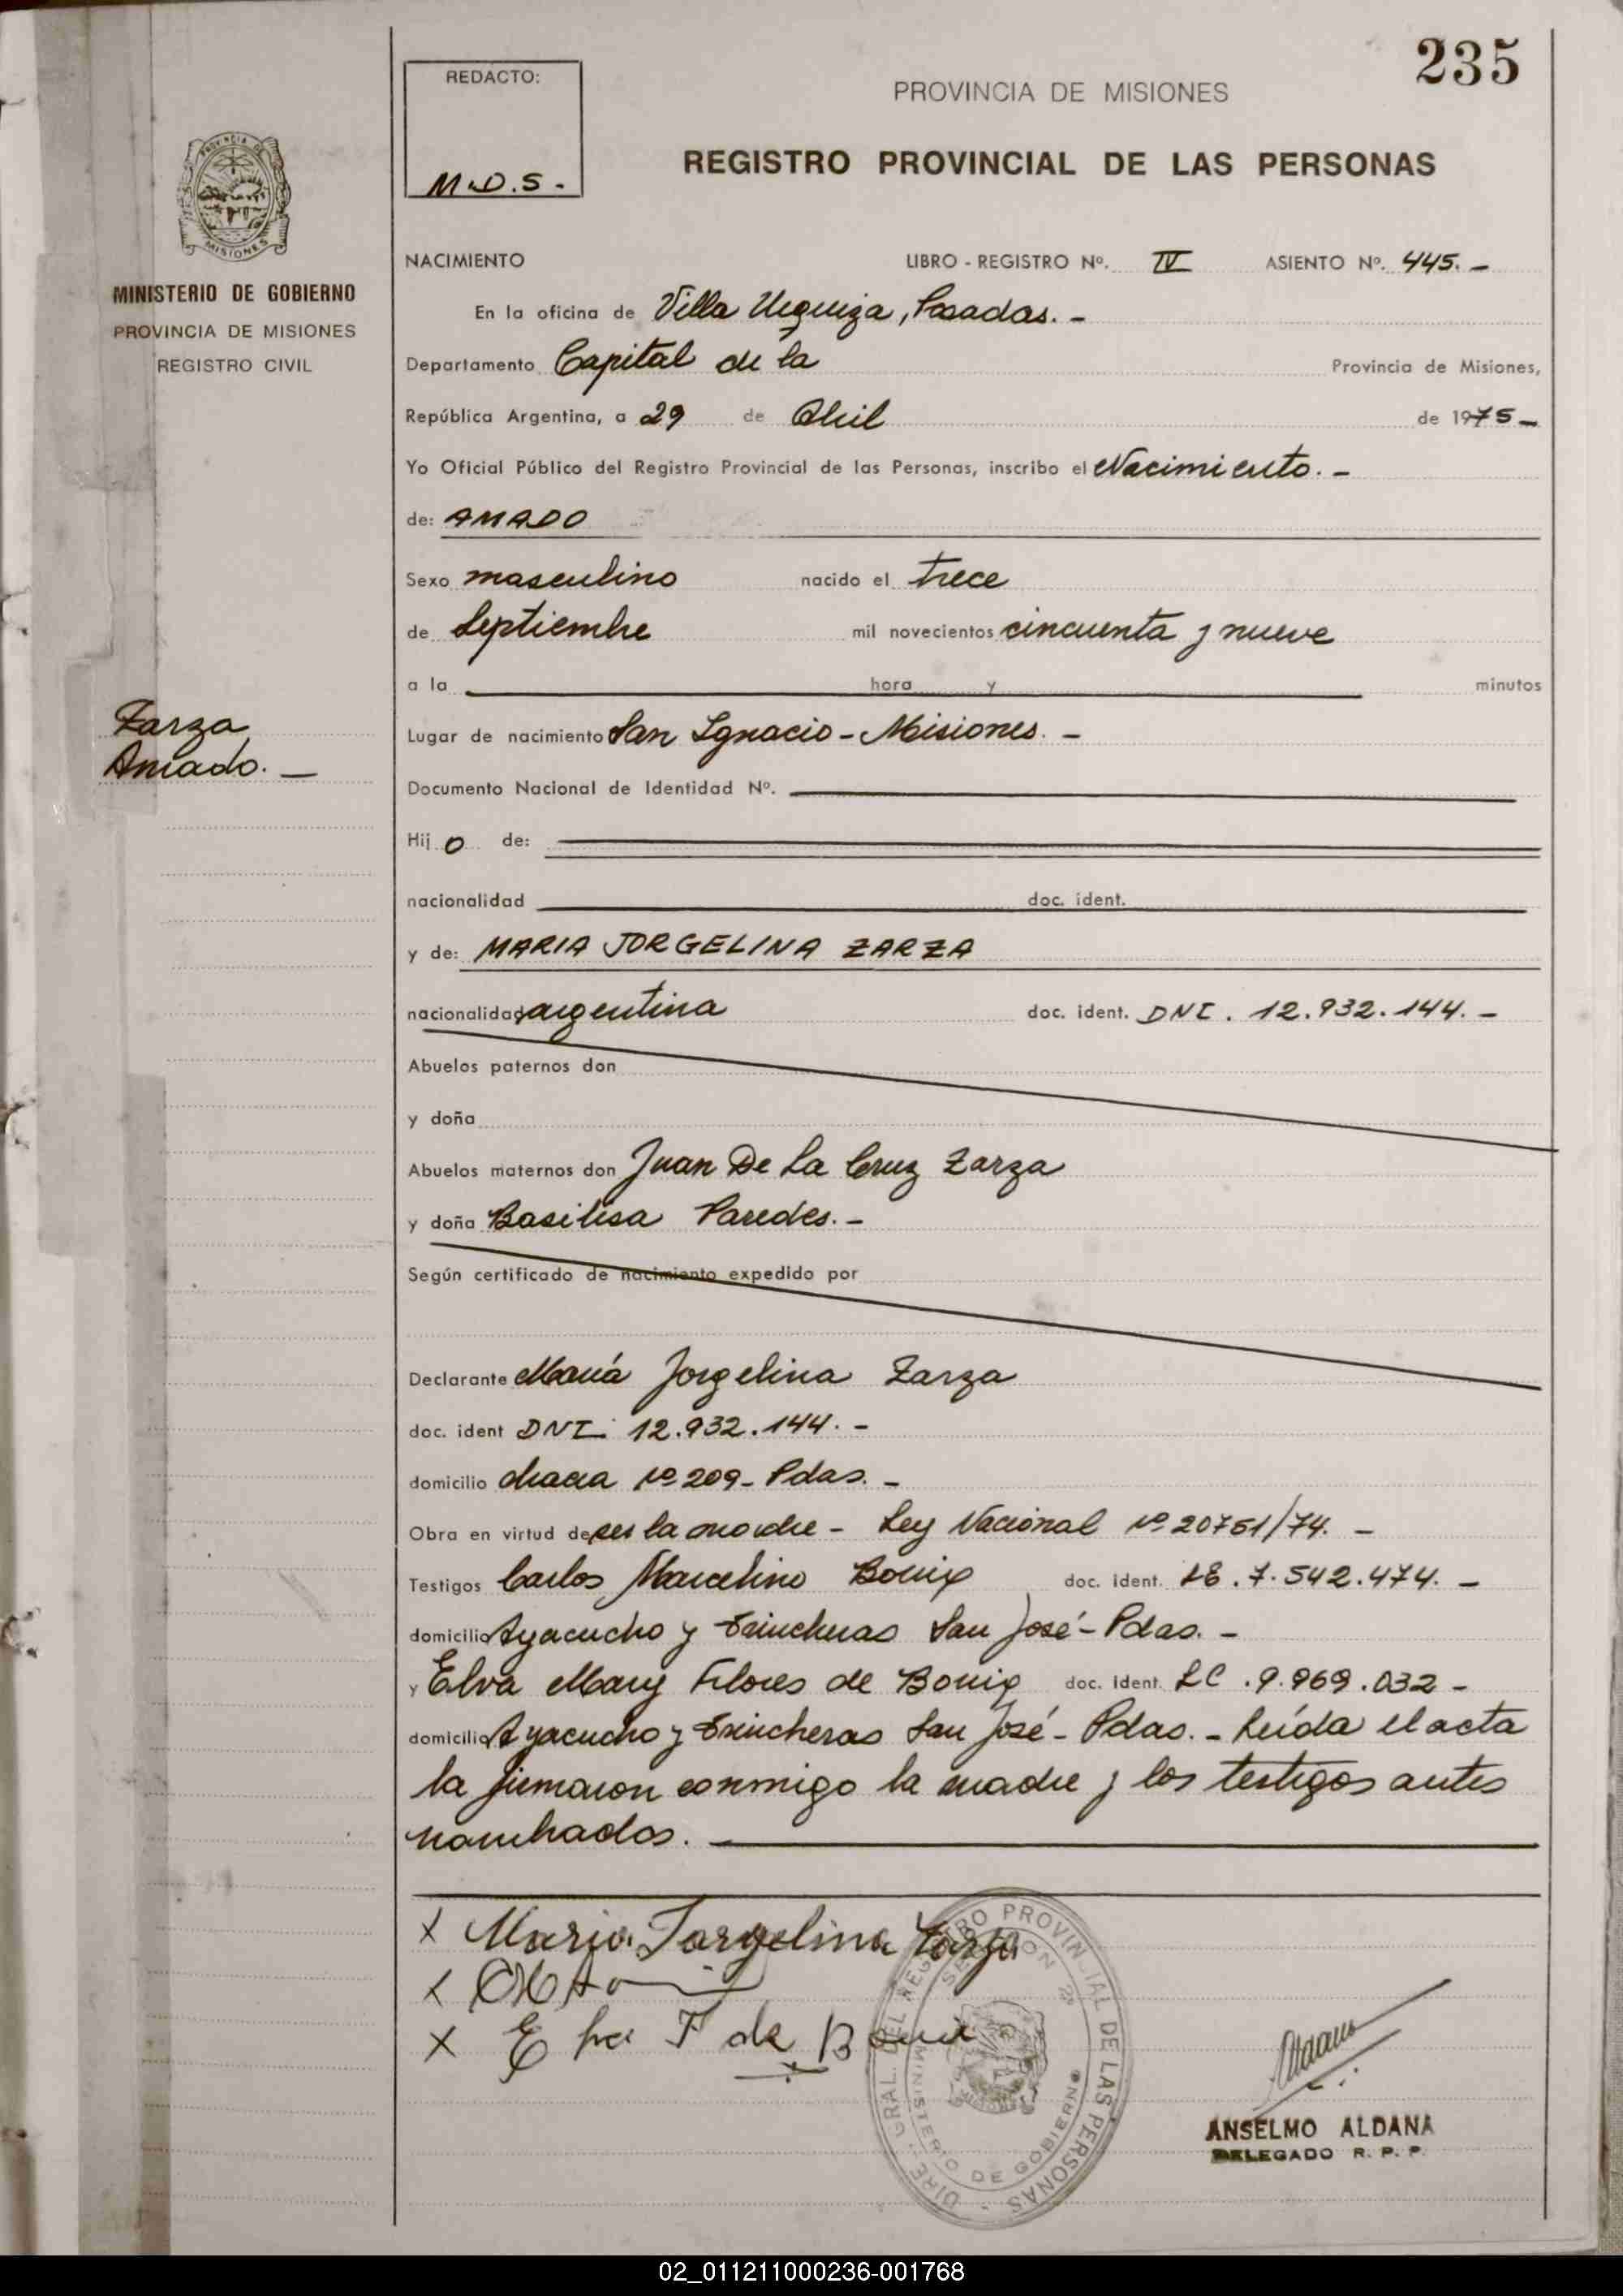 235
REDACTO:
M.D.S.-
PROVINCIA DE MISIONES
REGISTRO PROVINCIAL DE LAS PERSONAS
PROVINCIA DE
MISIONES
MINISTERIO DE GOBIERNO
PROVINCIA DE MISIONES
REGISTRO CIVIL
NACIMIENTO LIBRO - REGISTRO Nº. IV ASIENTO Nº. 445.-
En la oficina de Villa Urquiza, Posadas.-
Departamento Capital de la Provincia de Misiones,
República Argentina, a 29 de Abril de 1975-
Yo Oficial Público del Registro Provincial de las Personas, inscribo el Nacimiento.-
de: AMADO
Sexo masculino nacido el trece
de Septiembre mil novecientos cincuenta y nueve
a la hora y minutos
Zarza
Amado.-
Lugar de nacimiento San Ignacio - Misiones.-
Documento Nacional de Identidad Nº.
Hijo de:
nacionalidad doc. ident.
y de: MARIA JORGELINA ZARZA
nacionalidad argentina doc. ident. DNI. 12.932.144.-
Abuelos paternos don
y doña
Abuelos maternos don Juan De La Cruz Zarza
y doña Basilisa Paredes.-
Según certificado de nacimiento expedido por
Declarante María Jorgelina Zarza
doc. ident DNI. 12.932.144.-
domicilio chacra Nº 209- Pdas.-
Obra en virtud de ser la madre - Ley Nacional Nº 20751/74.-
Testigos Carlos Marcelino doc. ident. 7.542.474.-
domicilio Ayacucho y trincheras San José - Pdas.-
y Elva Mary Flores de doc. ident. LC.9.969.032-
domicilio Ayacucho y trincheras San José - Pdas.- Leída el acta
la firmaron conmigo la madre y los testigos antes
nombrados.
X Maria Jorgelina Zarza
X
X E F de
DIRE. GRAL. DEL REGISTRO PROVINCIAL DE LAS PERSONAS
SECCION 2ª
MINISTERIO DE GOBIERNO
ANSELMO ALDANA
DELEGADO R. P. P.
02_011211000236-001768